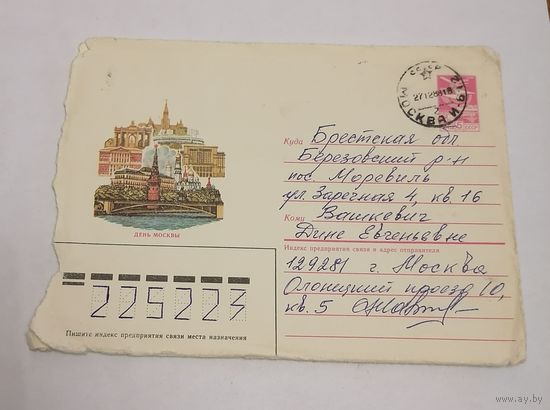 СССР
МОСКВА И-512
271288 18
5 СССР
ДЕНЬ МОСКВЫ
Куда Брестская обл
Березовский р-н
пос Моревиль
ул. Заречная 4, кв. 16
Кому Вашкевич
Дине Евгеньевне
Индекс предприятия связи и адрес отправителя
129281 г. Москва
Олонецкий проезд 10,
кв. 5
225223
Пишите индекс предприятия связи места назначения
www.ay.by